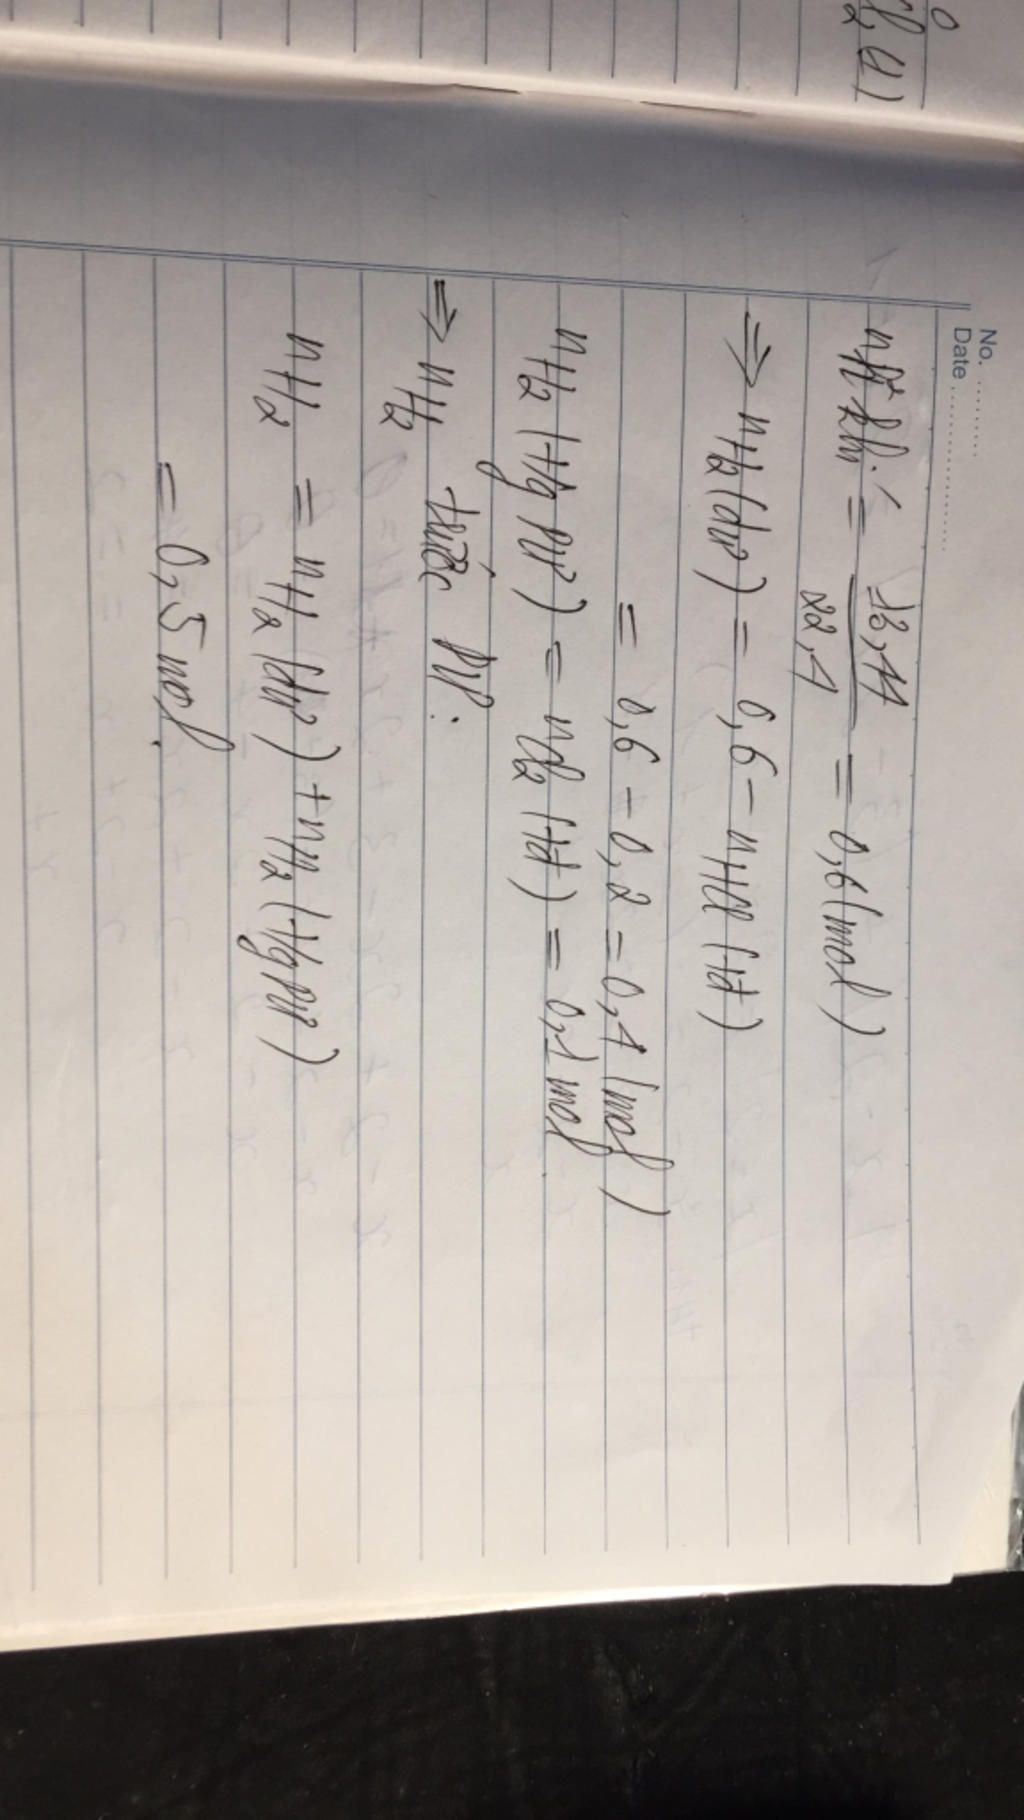 No. ............
Date .....................
n hh khí = 13,44 / 22,4 = 0,6 (mol)
⇒ nH2 (dư) = 0,6 - nHCl (tđ)
= 0,6 - 0,2 = 0,4 (mol)
nH2 (tg pư) = nCl2 (tđ) = 0,1 mol.
⇒ nH2 trước pư:
nH2 = nH2 (dư) + nH2 (tg pư)
= 0,5 mol.